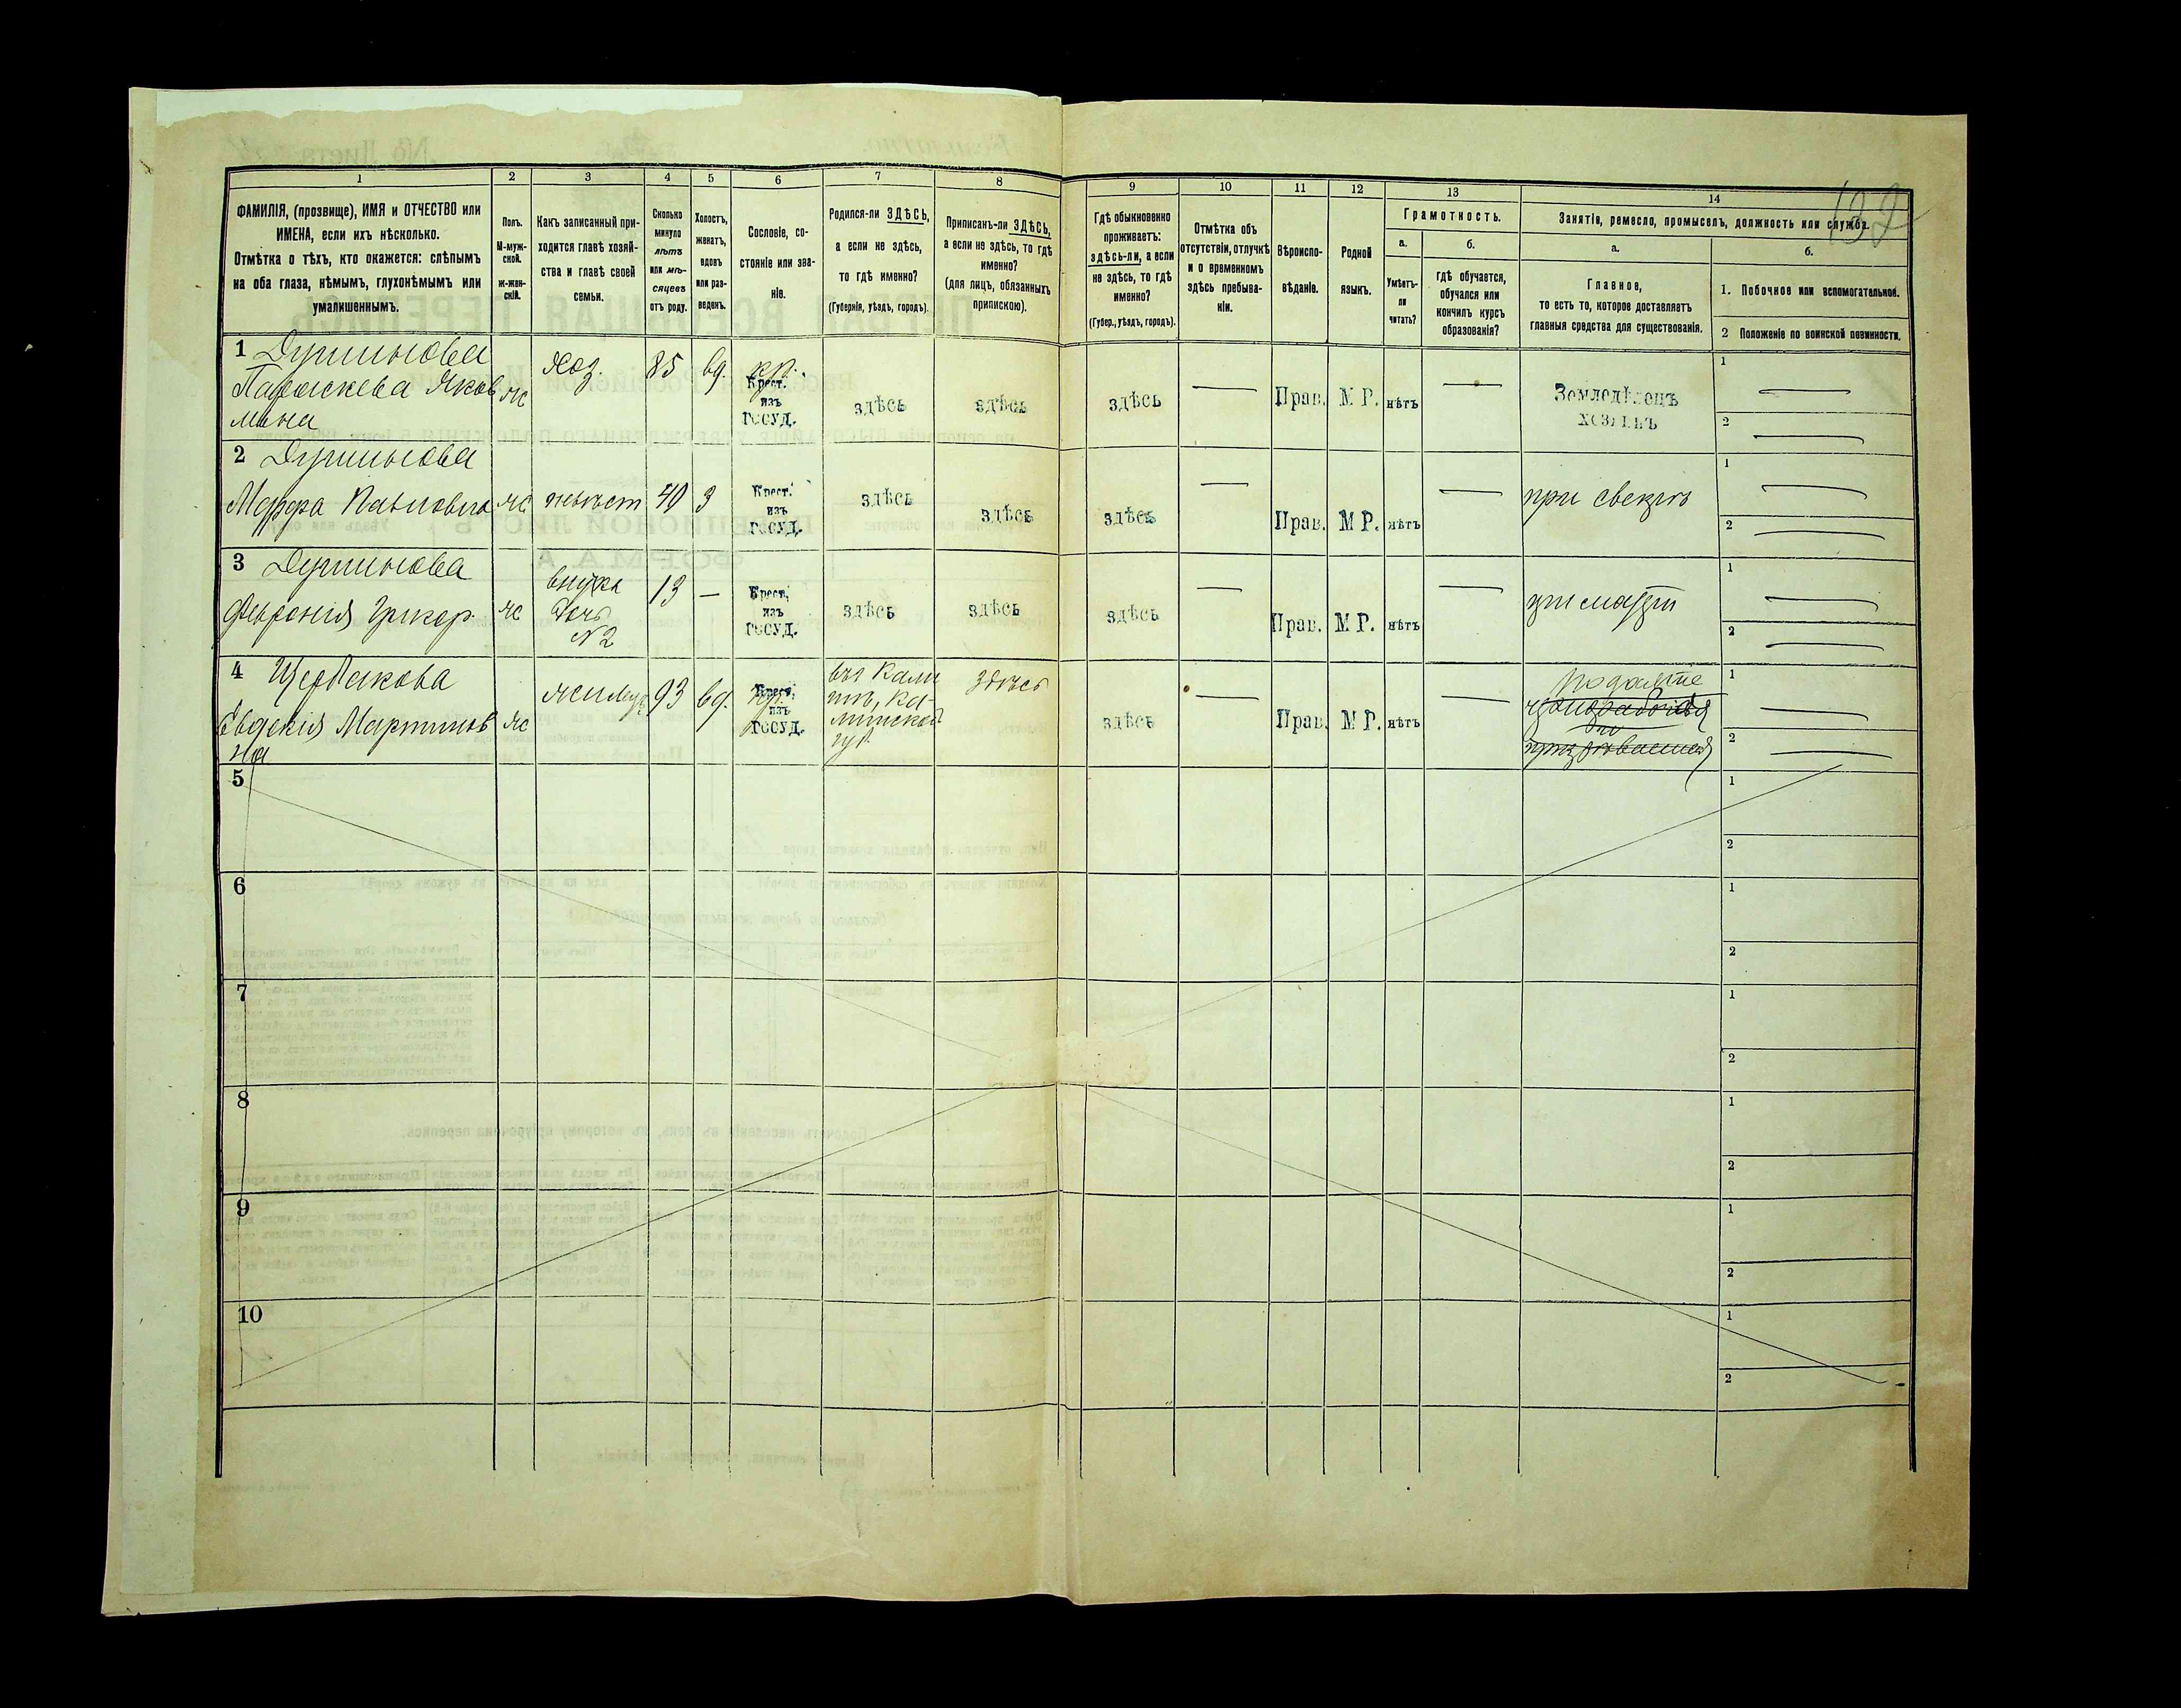 132
1 2 3 4 5 6 7 8 9 10 11 12 13 14
ФАМИЛІЯ, (прозвище), ИМЯ и ОТЧЕСТВО или
ИМЕНА, если ихъ нѣсколько.
Отмѣтка о тѣхъ, кто окажется: слѣпымъ
на оба глаза, нѣмымъ, глухонѣмымъ или
умалишеннымъ.
Полъ.
М-муж-
ской.
ж-жен-
скій.
Какъ записанный при-
ходится главѣ хозяй-
ства и главѣ своей
семьи.
Сколько
минуло
лѣтъ
или мѣ-
сяцевъ
отъ роду.
Холостъ,
женатъ,
вдовъ
или раз-
веденъ.
Сословіе, со-
стояніе или зва-
ніе.
Родился-ли ЗДѢСЬ,
а если не здѣсь,
то гдѣ именно?
(Губернія, уѣздъ, городъ).
Приписанъ-ли ЗДѢСЬ,
а если не здѣсь, то гдѣ
именно?
(для лицъ, обязанныхъ
припискою).
Гдѣ обыкновенно
проживаетъ:
здѣсь-ли, а если
не здѣсь, то гдѣ
именно?
(Губер., уѣздъ, городъ).
Отмѣтка объ
отсутствіи, отлучкѣ
и о временномъ
здѣсь пребыва-
ніи.
Вѣроиспо-
вѣданіе.
Родной
языкъ.
Грамотность.
а.
Умѣетъ-
ли
читать?
б.
гдѣ обучается,
обучался или
кончилъ курсъ
образованія?
Занятіе, ремесло, промыселъ, должность или служба.
а.
Главное,
то есть то, которое доставляетъ
главныя средства для существованія.
б.
1. Побочное или вспомогательное.
2 Положеніе по воинской повинности.
1
Парыскева Яков
лвна
ж
хоз.
85
вд.
кр.
Крест.
изъ
ГОСУД.
здѣсь
здѣсь
здѣсь
Прав.
М Р.
нѣтъ
Земледѣлецъ
хозяинъ
1
2
2
Марфа Павловна
ж
невѣст
40
З
Крест.
изъ
ГОСУД.
здѣсь
здѣсь
здѣсь
Прав.
М Р.
нѣтъ
1
2
3
Февронія Григор.
ж
внука
дочь
N2
13
Крест.
изъ
ГОСУД.
здѣсь
здѣсь
здѣсь
Прав.
М Р.
нѣтъ
1
2
4 Щербакова
Евдокія Мартинов
на
ж
93
вд.
Крест.
изъ
ГОСУД.
здѣсь
здѣсь
Прав.
М Р.
нѣтъ
1
2
5
1
2
6
1
2
7
1
2
8
1
2
9
1
2
10
1
2